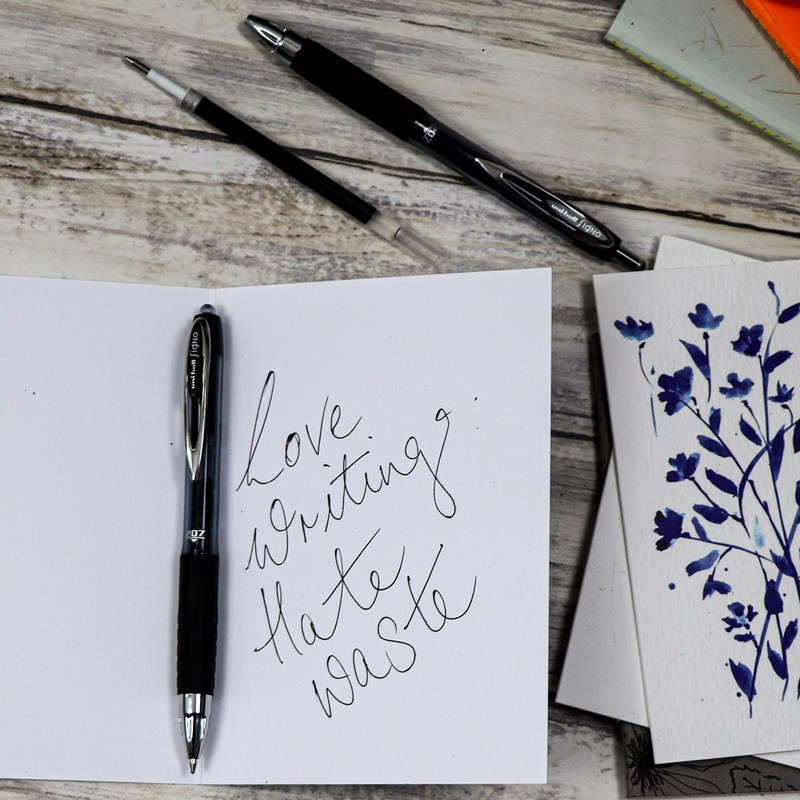 uni-ball SIGNO
207
uni-ball SIGNO
207
Love
Writing
Hate
waste